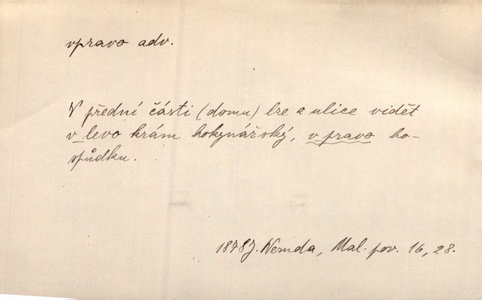 vpravo adv.
V přední části (domu) lze z ulice vidět
v levo krám hokynářský, v pravo ho-
spůdku.
1878 J. Neruda, Mal. pov. 16, 28.